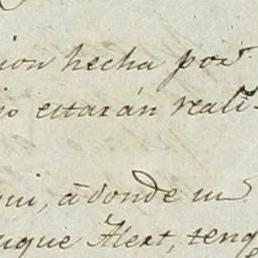 ion hecha por
io estarán reali-
qui, à donde un
uque Alert, teng